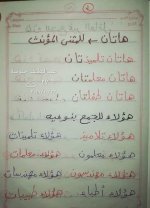 هاتان ← للمثنى المؤنث
هاتان تلميذتان
هاتان معلمتان
هاتان طفلتان
هؤلاء للجمع بنوعيه
هؤلاء تلاميذ هؤلاء تلميذات
هؤلاء معلمون هؤلاء معلمات
هؤلاء مهندسون هؤلاء مهندسات
هؤلاء أطباء هؤلاء طبيبات